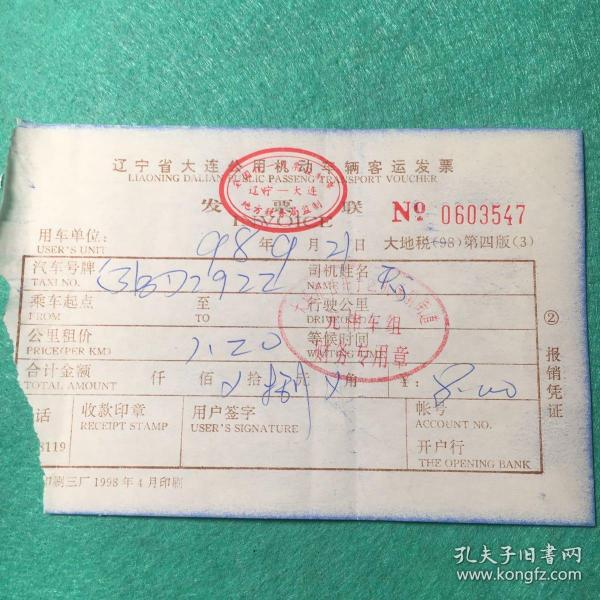 辽宁省大连公用机动车辆客运发票
LIAONING DALIAN PUBLIC PASSENG TRANSPORT VOUCHER
辽宁一大连
发票联
INVOICE
№ 0603547
用车单位:
USER'S UNIT
98年9月21日
大地税(98)第四版(3)
汽车号牌
TAXI NO.
司机姓名
乘车起点
FROM
至
TO
行驶公里
公里租价
PRICE(PER KM)
1.20
等候时间
元伸车组
专用章
合计金额
TOTAL AMOUNT
仟 佰 拾 元 角
¥: 8.00
话
8119
收款印章
RECEIPT STAMP
用户签字
USER'S SIGNATURE
帐号
ACCOUNT NO.
开户行
THE OPENING BANK
② 报销凭证
印刷三厂1998年4月印刷
孔夫子旧书网
www.kongfz.com